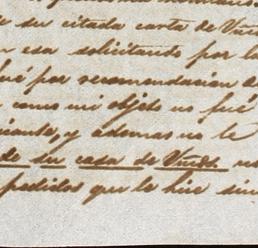 de su citada carta de
en esa solicitando por la
qué por recomendacion de
como mi objeto no fué
y ademas no le
de su casa de
pedidos que le hice sin